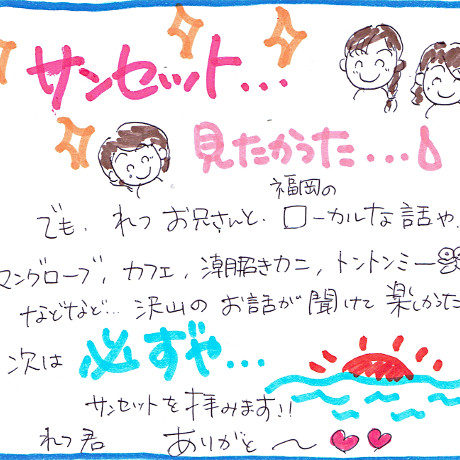 サンセット...
見たかった...
福岡の
でも、れつお兄さんと、ローカルな話や
マングローブ, カフェ, 潮招きカニ, トントンミー
などなど... 沢山のお話が聞けて楽しかた
次は 必ずや...
サンセットを拝みます!!
れつ君 ありがと〜